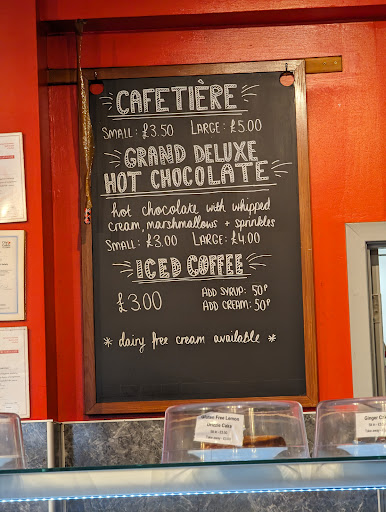 CAFETIÈRE
SMALL: £3.50 LARGE: £5.00
GRAND DELUXE
HOT CHOCOLATE
hot chocolate with whipped
cream, marshmallows + sprinkles
SMALL: £3.00 LARGE: £4.00
ICED COFFEE
£3.00
ADD SYRUP: 50P
ADD CREAM: 50P
* dairy free cream available *
Gluten Free Lemon
Drizzle Cake
Ginger